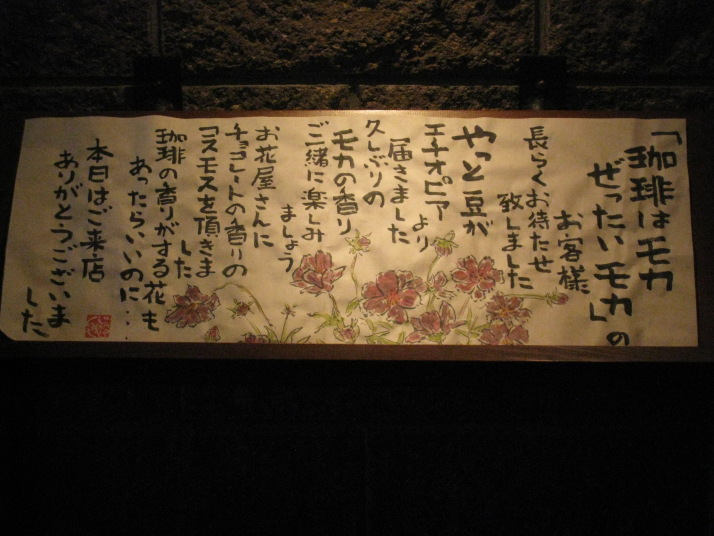 「珈琲はモカ
ぜったいモカ」の
お客様
長らくお待たせ
致しました
やっと豆が
エチオピア
より
届きました
久しぶりの
モカの香り
ご一緒に楽しみ
ましょう
お花屋さんに
チョコレートの香りの
コスモスを頂きま
した
珈琲の香りがする花も
あったらいいのに…
本日はご来店
ありがとうございま
した